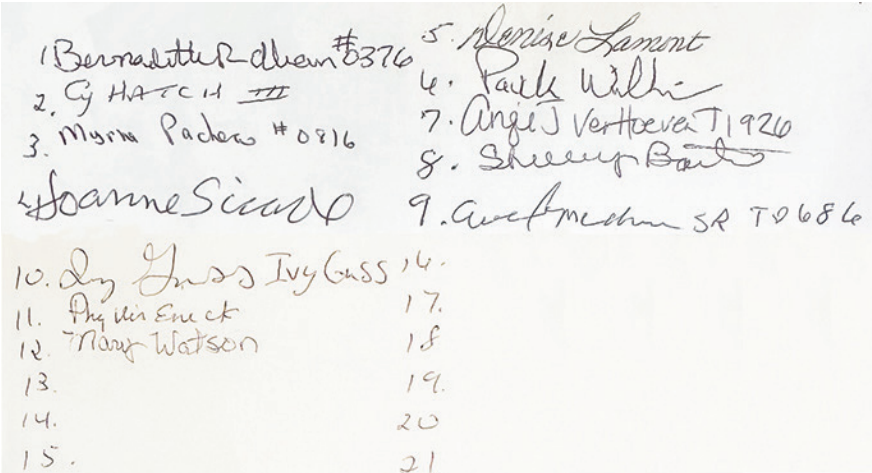 1 Bernadette R #0376
2. Cy HATCH III
3. Myrna Pacheco # 0816
4 Joanne
5. Denise Lamont
6.
7. Angie J VerHoeven T1926
8.
9. SR T0686
10. Ivy Guss Ivy Guss
11. Phyllis Eneck
12 Mary Watson
13.
14.
15.
16.
17.
18
19.
20
21